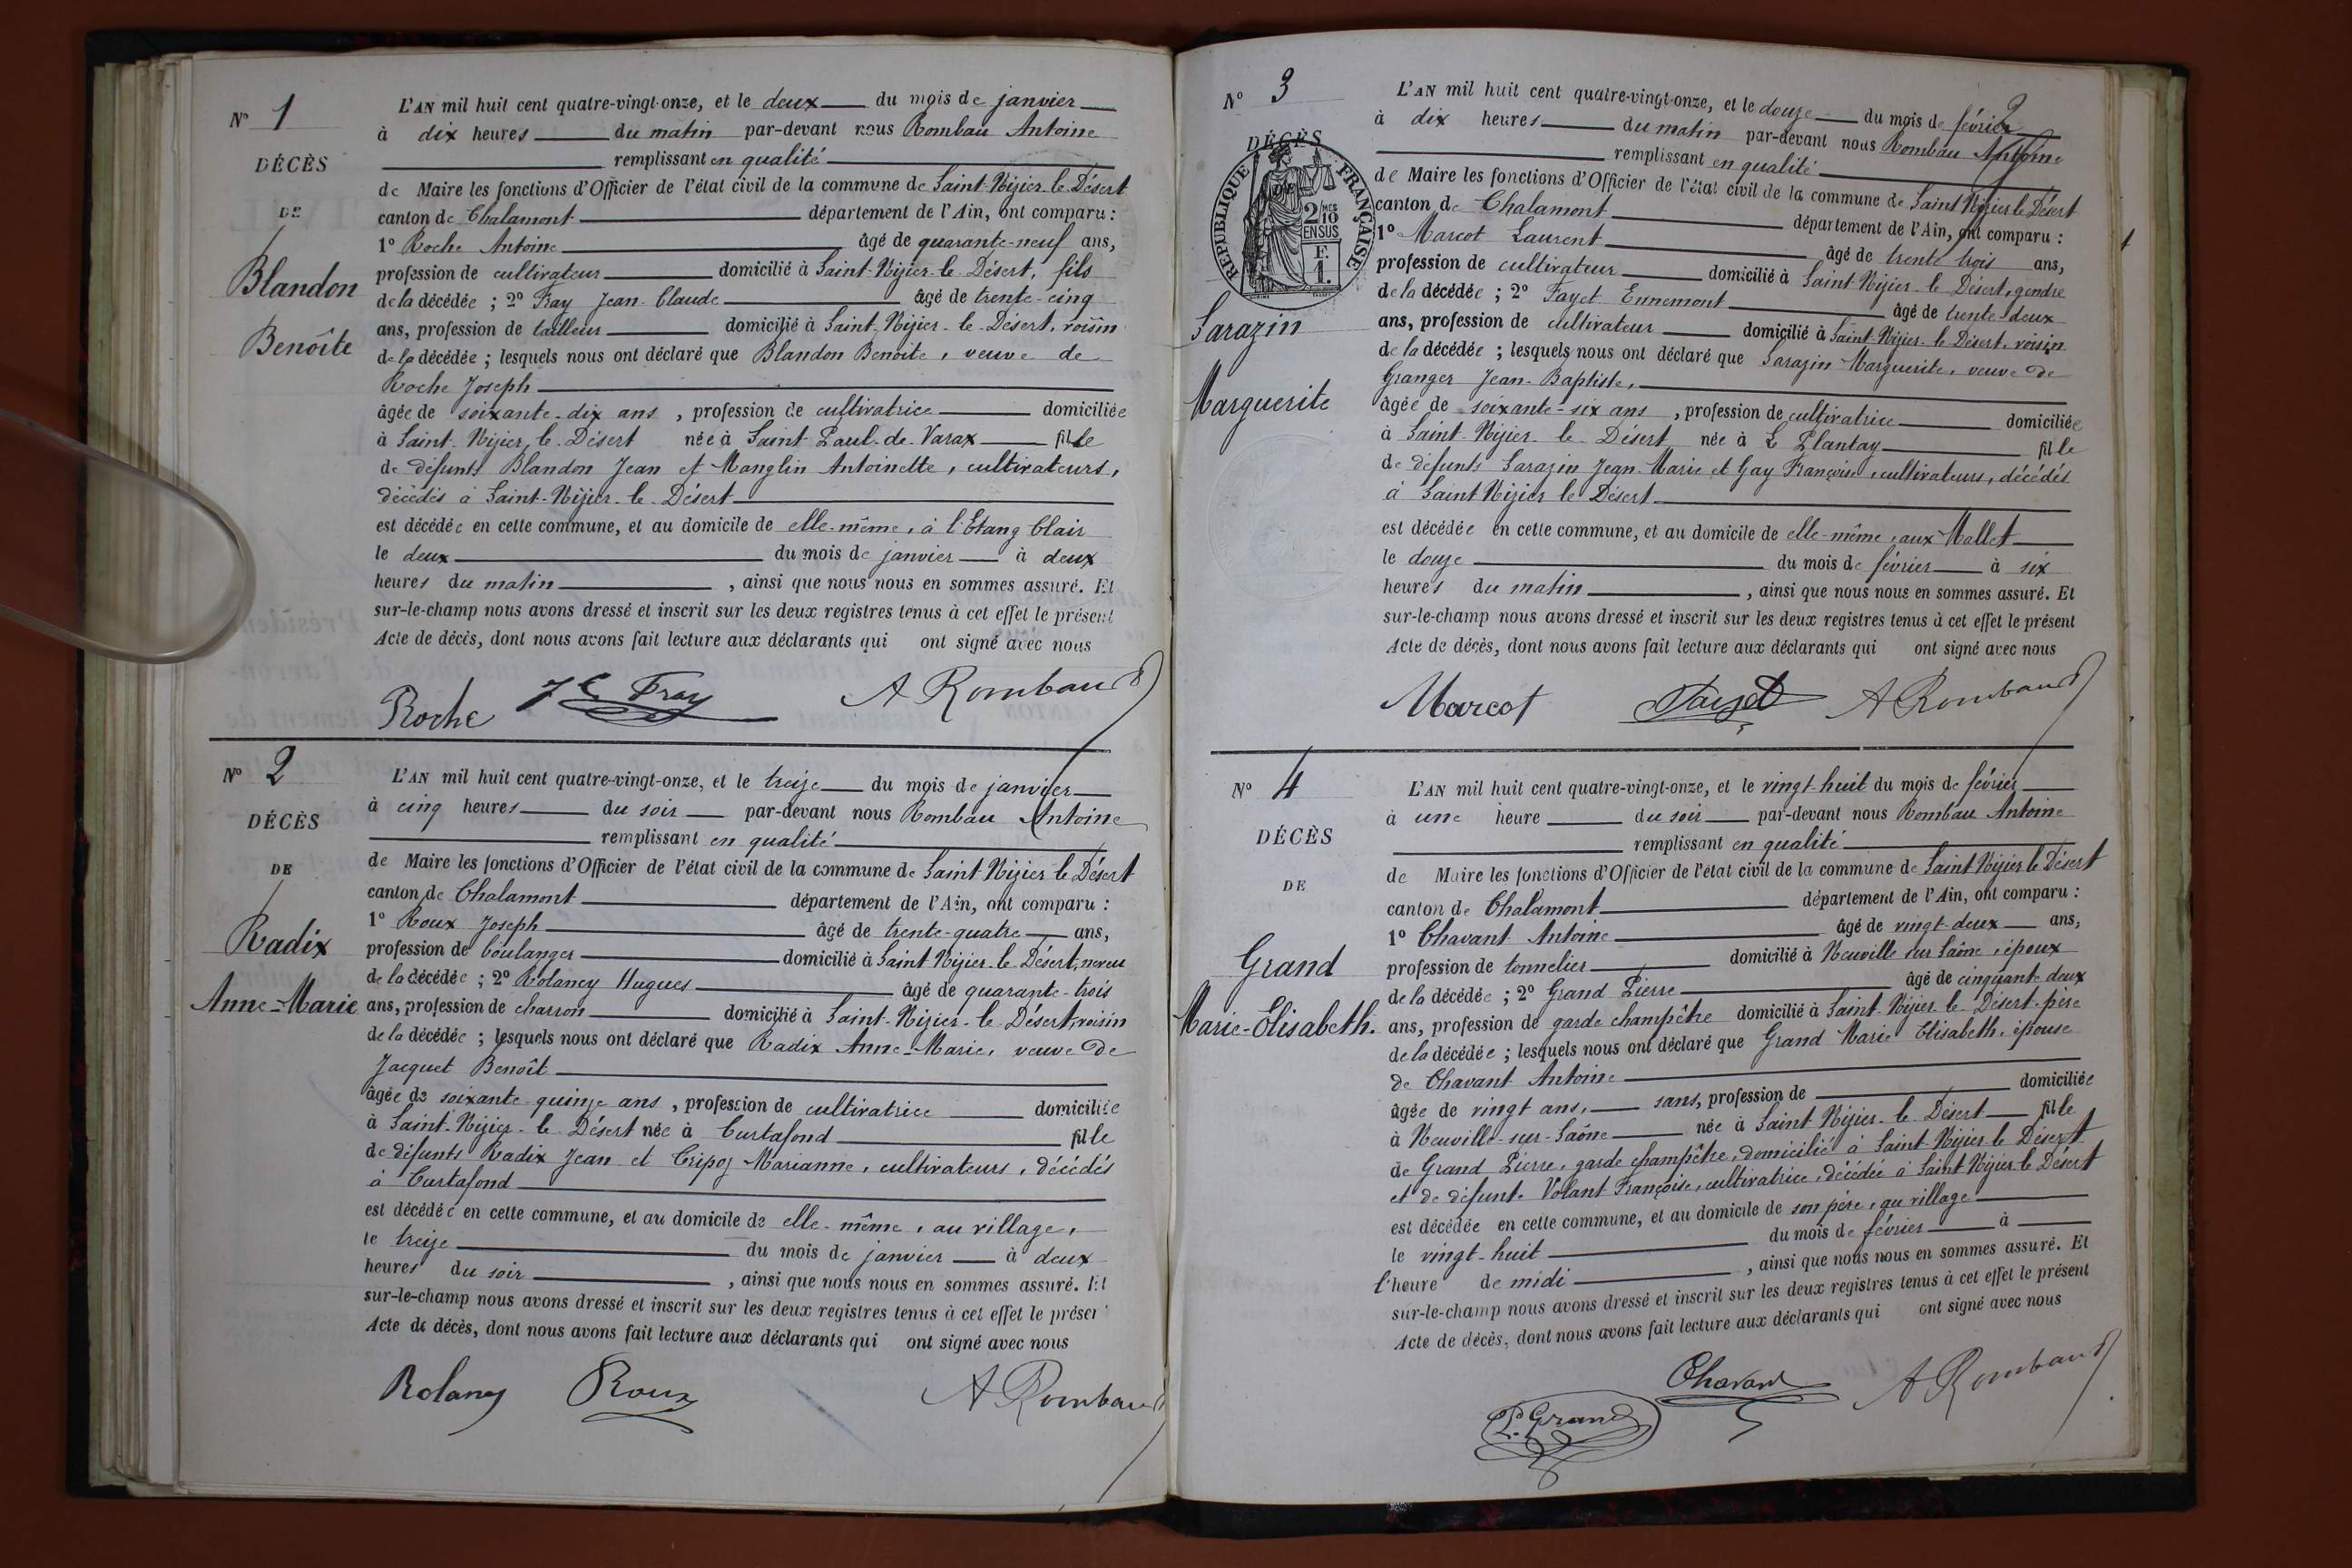 N° 1
DÉCÈS
DE
Blandon
Benoîte
L'AN mil huit cent quatre-vingt-onze, et le deux du mois de janvier
à dix heures du matin par-devant nous Rombau Antoine
remplissant en qualité
de Maire les fonctions d'Officier de l'état civil de la commune de Saint-Nizier-le-Désert
canton de Chalamont département de l'Ain, ont comparu :
1° Roche Antoine âgé de quarante-neuf ans,
profession de cultivateur domicilié à Saint-Nizier-le-Désert, fils
de la décédée ; 2° Fray Jean Claude âgé de trente-cinq
ans, profession de tailleur domicilié à Saint-Nizier-le-Désert, voisin
de la décédée ; lesquels nous ont déclaré que Blandon Benoîte, veuve de
Roche Joseph
âgée de soixante-dix ans, profession de cultivatrice domiciliée
à Saint-Nizier-le-Désert née à Saint-Paul-de-Varax fille
de défunts Blandon Jean et Manglin Antoinette, cultivateurs,
décédés à Saint-Nizier-le-Désert
est décédée en cette commune, et au domicile de elle-même, à l'Etang Clair
le deux du mois de janvier à deux
heures du matin, ainsi que nous nous en sommes assuré. Et
sur-le-champ nous avons dressé et inscrit sur les deux registres tenus à cet effet le présent
Acte de décès, dont nous avons fait lecture aux déclarants qui ont signé avec nous
Roche JC Fray A Rombaud
N° 2
DÉCÈS
DE
Radix
Anne-Marie
L'AN mil huit cent quatre-vingt-onze, et le treize du mois de janvier
à cinq heures du soir par-devant nous Rombau Antoine
remplissant en qualité
de Maire les fonctions d'Officier de l'état civil de la commune de Saint-Nizier-le-Désert
canton de Chalamont département de l'Ain, ont comparu :
1° Roux Joseph âgé de trente-quatre ans,
profession de boulanger domicilié à Saint-Nizier-le-Désert, neveu
de la décédée ; 2° Rolancy Hugues âgé de quarante-trois
ans, profession de charron domicilié à Saint-Nizier-le-Désert, voisin
de la décédée ; lesquels nous ont déclaré que Radix Anne-Marie, veuve de
Jacquet Benoît
âgée de soixante-quinze ans, profession de cultivatrice domiciliée
à Saint-Nizier-le-Désert née à Curtafond fille
de défunts Radix Jean et Cripoz Marianne, cultivateurs, décédés
à Curtafond
est décédée en cette commune, et au domicile de elle-même, au village,
le treize du mois de janvier à deux
heures du soir, ainsi que nous nous en sommes assuré. Et
sur-le-champ nous avons dressé et inscrit sur les deux registres tenus à cet effet le présen
Acte de décès, dont nous avons fait lecture aux déclarants qui ont signé avec nous
Rolancy Roux A Rombaud
N° 3
DÉCÈS
DE
RÉPUBLIQUE FRANÇAISE
2/10 MES
EN SUS
F.
1.
Sarazin
Marguerite
2
L'AN mil huit cent quatre-vingt-onze, et le douze du mois de février
à dix heures du matin par-devant nous Rombau Antoine
remplissant en qualité
de Maire les fonctions d'Officier de l'état civil de la commune de Saint Nizier le Désert
canton de Chalamont département de l'Ain, ont comparu :
1° Marcot Laurent âgé de trente trois ans,
profession de cultivateur domicilié à Saint-Nizier-le-Désert, gendre
de la décédée ; 2° Fayet Ennemont âgé de trente-deux
ans, profession de cultivateur domicilié à Saint-Nizier-le-Désert, voisin
de la décédée ; lesquels nous ont déclaré que Sarazin Marguerite, veuve de
Granger Jean-Baptiste,
âgée de soixante-six ans, profession de cultivatrice domiciliée
à Saint-Nizier-le-Désert née à Le Plantay fille
de défunts Sarazin Jean-Marie et Gay Françoise, cultivateurs, décédés
à Saint Nizier le Désert
est décédée en cette commune, et au domicile de elle-même, aux Mallet
le douze du mois de février à six
heures du matin, ainsi que nous nous en sommes assuré. Et
sur-le-champ nous avons dressé et inscrit sur les deux registres tenus à cet effet le présent
Acte de décès, dont nous avons fait lecture aux déclarants qui ont signé avec nous
Marcot Fayet A Rombaud
N° 4
DÉCÈS
DE
Grand
Marie-Elisabeth.
L'AN mil huit cent quatre-vingt-onze, et le vingt-huit du mois de février
à une heure du soir par-devant nous Rombau Antoine
remplissant en qualité
de Maire les fonctions d'Officier de l'état civil de la commune de Saint Nizier le Désert
canton de Chalamont département de l'Ain, ont comparu :
1° Chavant Antoine âgé de vingt-deux ans,
profession de tonnelier domicilié à Neuville sur Saône, époux
de la décédée ; 2° Grand Pierre âgé de cinquante deux
ans, profession de garde champêtre domicilié à Saint-Nizier-le-Désert, père
de la décédée ; lesquels nous ont déclaré que Grand Marie Elisabeth, épouse
de Chavant Antoine
âgée de vingt ans, sans, profession de domiciliée
à Neuville-sur-Saône née à Saint-Nizier-le-Désert fille
de Grand Pierre, garde champêtre, domicilié à Saint-Nizier le Désert
et de défunte Volant Françoise, cultivatrice, décédée à Saint Nizier-le-Désert
est décédée en cette commune, et au domicile de son père, au village
le vingt-huit du mois de février à
l'heure de midi, ainsi que nous nous en sommes assuré. Et
sur-le-champ nous avons dressé et inscrit sur les deux registres tenus à cet effet le présent
Acte de décès, dont nous avons fait lecture aux déclarants qui ont signé avec nous
Chavant A Rombaud
P. Grand